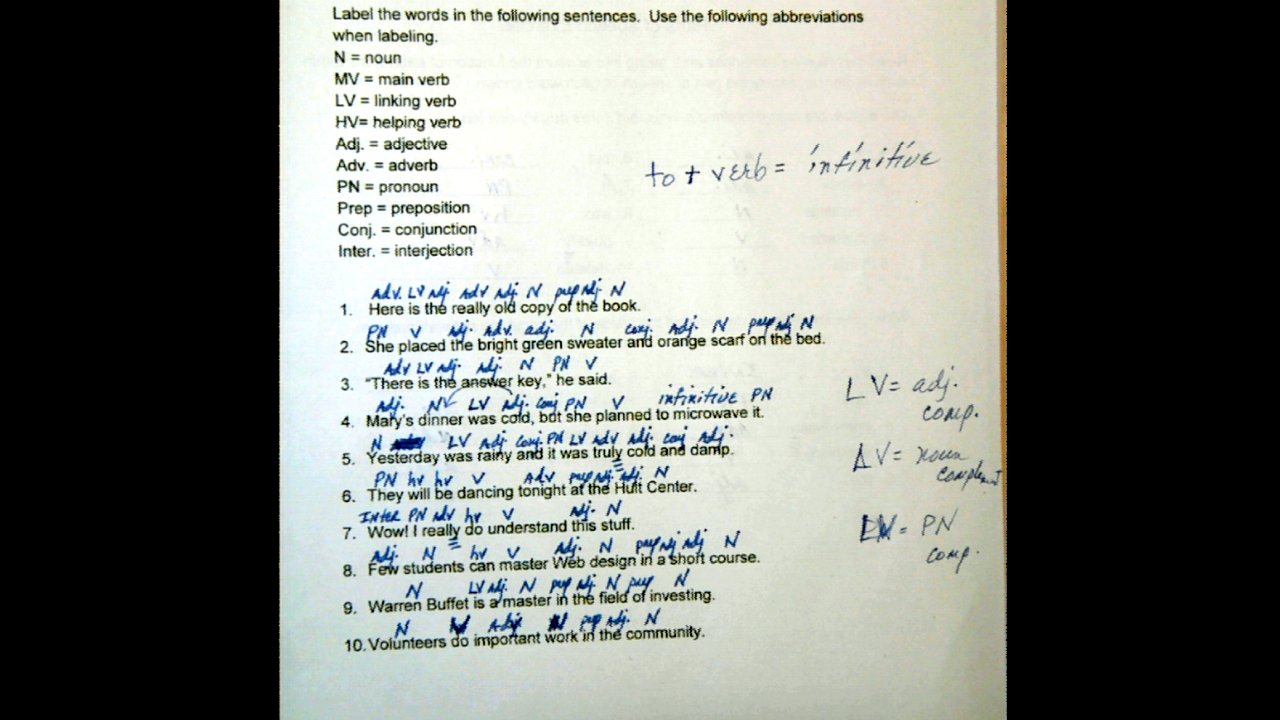 Label the words in the following sentences. Use the following abbreviations
when labeling.
N = noun
MV = main verb
LV = linking verb
HV= helping verb
Adj. = adjective
Adv. = adverb
PN = pronoun
Prep = preposition
Conj. = conjunction
Inter. = interjection
to + verb = infinitive
Adv. LV adj. Adv Adj. N prep adj. N
1. Here is the really old copy of the book.
PN V adj. Adv. adj. N conj. Adj. N prep adj N
2. She placed the bright green sweater and orange scarf on the bed.
Adv LV adj. Adj. N PN V
3. "There is the answer key," he said.
Adj. N LV Adj. conj PN V infinitive PN
4. Mary's dinner was cold, but she planned to microwave it.
N LV Adj conj. PN LV Adv Adj. conj Adj.
5. Yesterday was rainy and it was truly cold and damp.
PN hv hv V Adv prep adj. adj. N
6. They will be dancing tonight at the Hult Center.
Inter PN Adv hv V Adj. N
7. Wow! I really do understand this stuff.
Adj. N hv V Adj. N prep adj adj N
8. Few students can master Web design in a short course.
N LV adj. N prep adj. N prep N
9. Warren Buffet is a master in the field of investing.
N V Adj N prep adj. N
10. Volunteers do important work in the community.
LV = adj.
comp.
= noun
complement
= PN
comp.